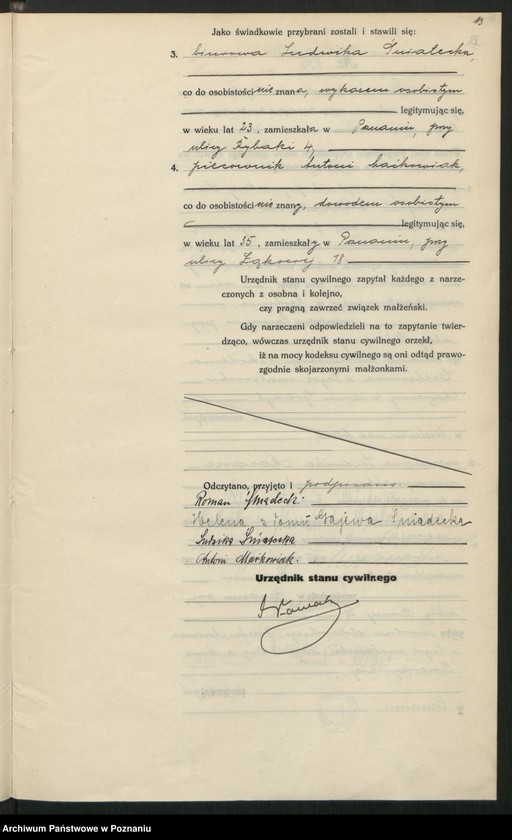 13
Jako świadkowie przybrani zostali i stawili się:
3. biurowa Ludwika Świątecka,
co do osobistości nie znana, wykazem osobistym
legitymując się,
w wieku lat 23, zamieszkała w Poznaniu, przy
ulicy Rybaki 4,
4. pracownik Antoni Maćkowiak,
co do osobistości nie znany, dowodem osobistym
legitymując się,
w wieku lat 35, zamieszkały w Poznaniu, przy
ulicy Łąkowej 18
Urzędnik stanu cywilnego zapytał każdego z narze-
czonych z osobna i kolejno,
czy pragną zawrzeć związek małżeński.
Gdy narzeczeni odpowiedzieli na to zapytanie twier-
dząco, wówczas urzędnik stanu cywilnego orzekł,
iż na mocy kodeksu cywilnego są oni odtąd prawo-
zgodnie skojarzonymi małżonkami.
Odczytano, przyjęto i podpisano.
Roman Śniadecki
Helena z domu Gajewa Śniadecka
Ludwika Świątecka
Antoni Maćkowiak.
Urzędnik stanu cywilnego
Archiwum Państwowe w Poznaniu